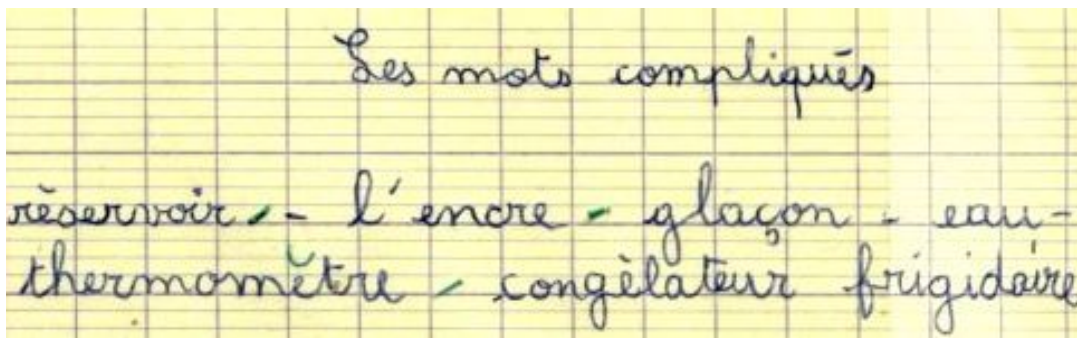 Les mots compliqués
rèservoir - - l'encre - glaçon - eau -
thermomètre - congèlateur frigidaire